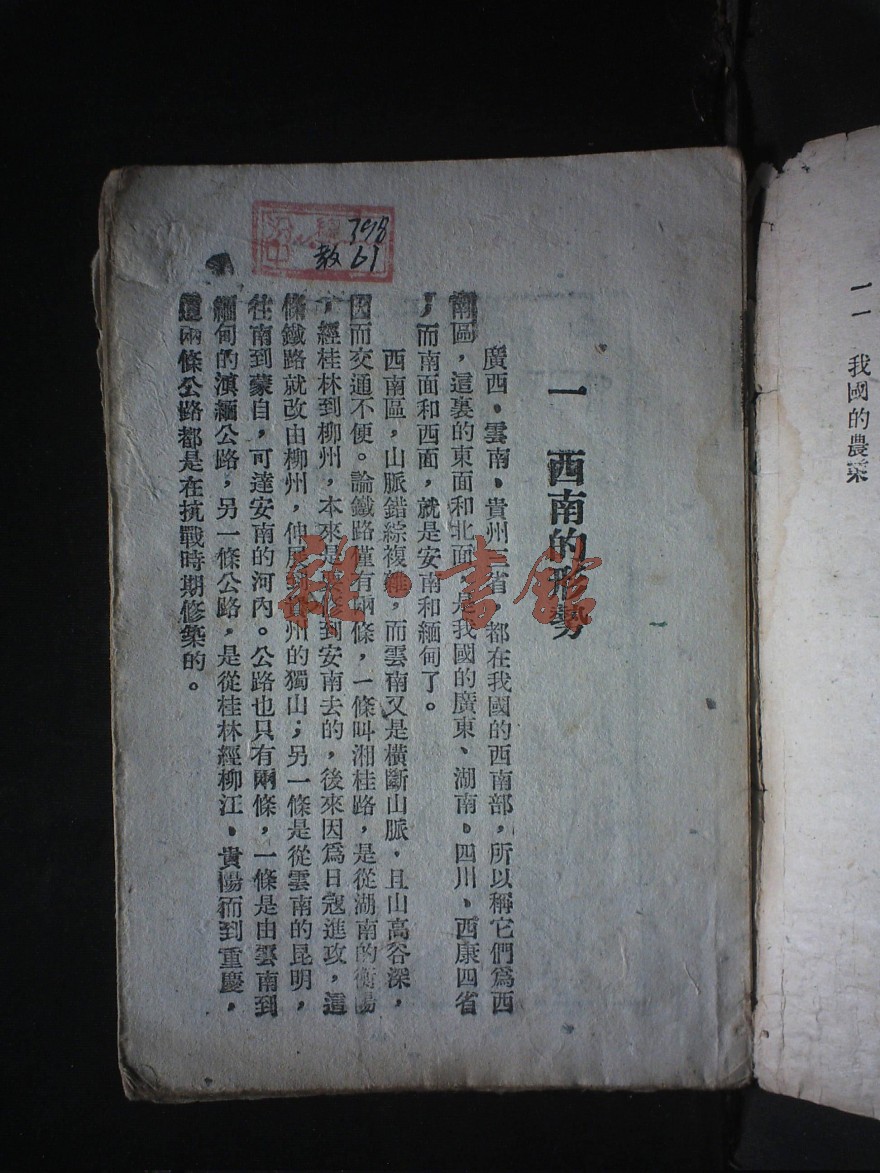 一一 我國的農業
一 西南的形勢
廣西、雲南、貴州三省，都在我國的西南部，所以稱它們爲西
南區，這裏的東面和北面，是我國的廣東、湖南、四川、西康四省
，而南面和西面，就是安南和緬甸了。
西南區，山脈錯綜複雜，而雲南又是橫斷山脈，且山高谷深，
因而交通不便。論鐵路僅有兩條，一條叫湘桂路，是從湖南的衡陽
，經桂林到柳州，本來是要修到安南去的，後來因爲日寇進攻，這
條鐵路就改由柳州，伸展到貴州的獨山；另一條是從雲南的昆明，
往南到蒙自，可達安南的河內。公路也只有兩條，一條是由雲南到
緬甸的滇緬公路，另一條公路，是從桂林經柳江、貴陽而到重慶，
這兩條公路都是在抗戰時期修築的。
總 398
教 61
雜·書館